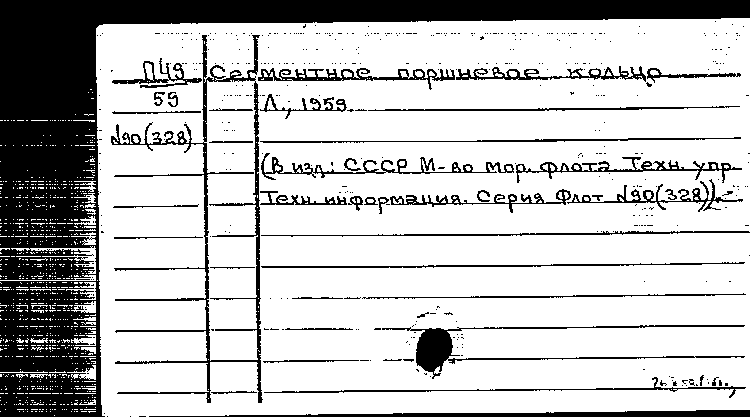 П49 Сегментное поршневое кольцо
59 Л., 1959.
№90(328)
(В изд.: СССР М-во мор. флота. Техн. упр.
Техн. информация. Серия Флот №90(328)).-